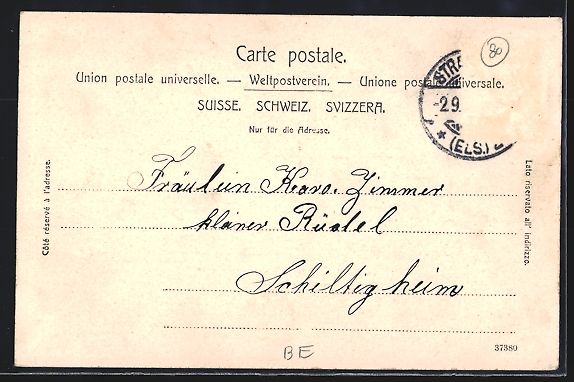 Carte postale.
Union postale universelle. — Weltpostverein. — Unione postale universale.
SUISSE. SCHWEIZ. SVIZZERA.
Nur für die Adresse.
Côté réservé à l'adresse.
Lato riservato all' indirizzo.
STRA
-2.9.
* (ELS.)
80
Fräulein Zimmer
Schiltigheim
37380
BE